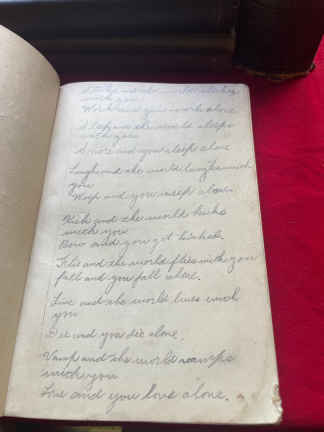 and the world
with you
Work and you work alone
Sleep and the world sleeps
with you
Snore and you sleep alone
Laugh and the world laughs with
you
Weep and you weep alone.
Kick and the world kicks
with you
Bow and you get kicked.
Flie and the world flies with you
fall and you fall alone.
Live and the world lives with
you
Die and you die alone.
Vamp and the world vamps
with you
Love and you love alone.